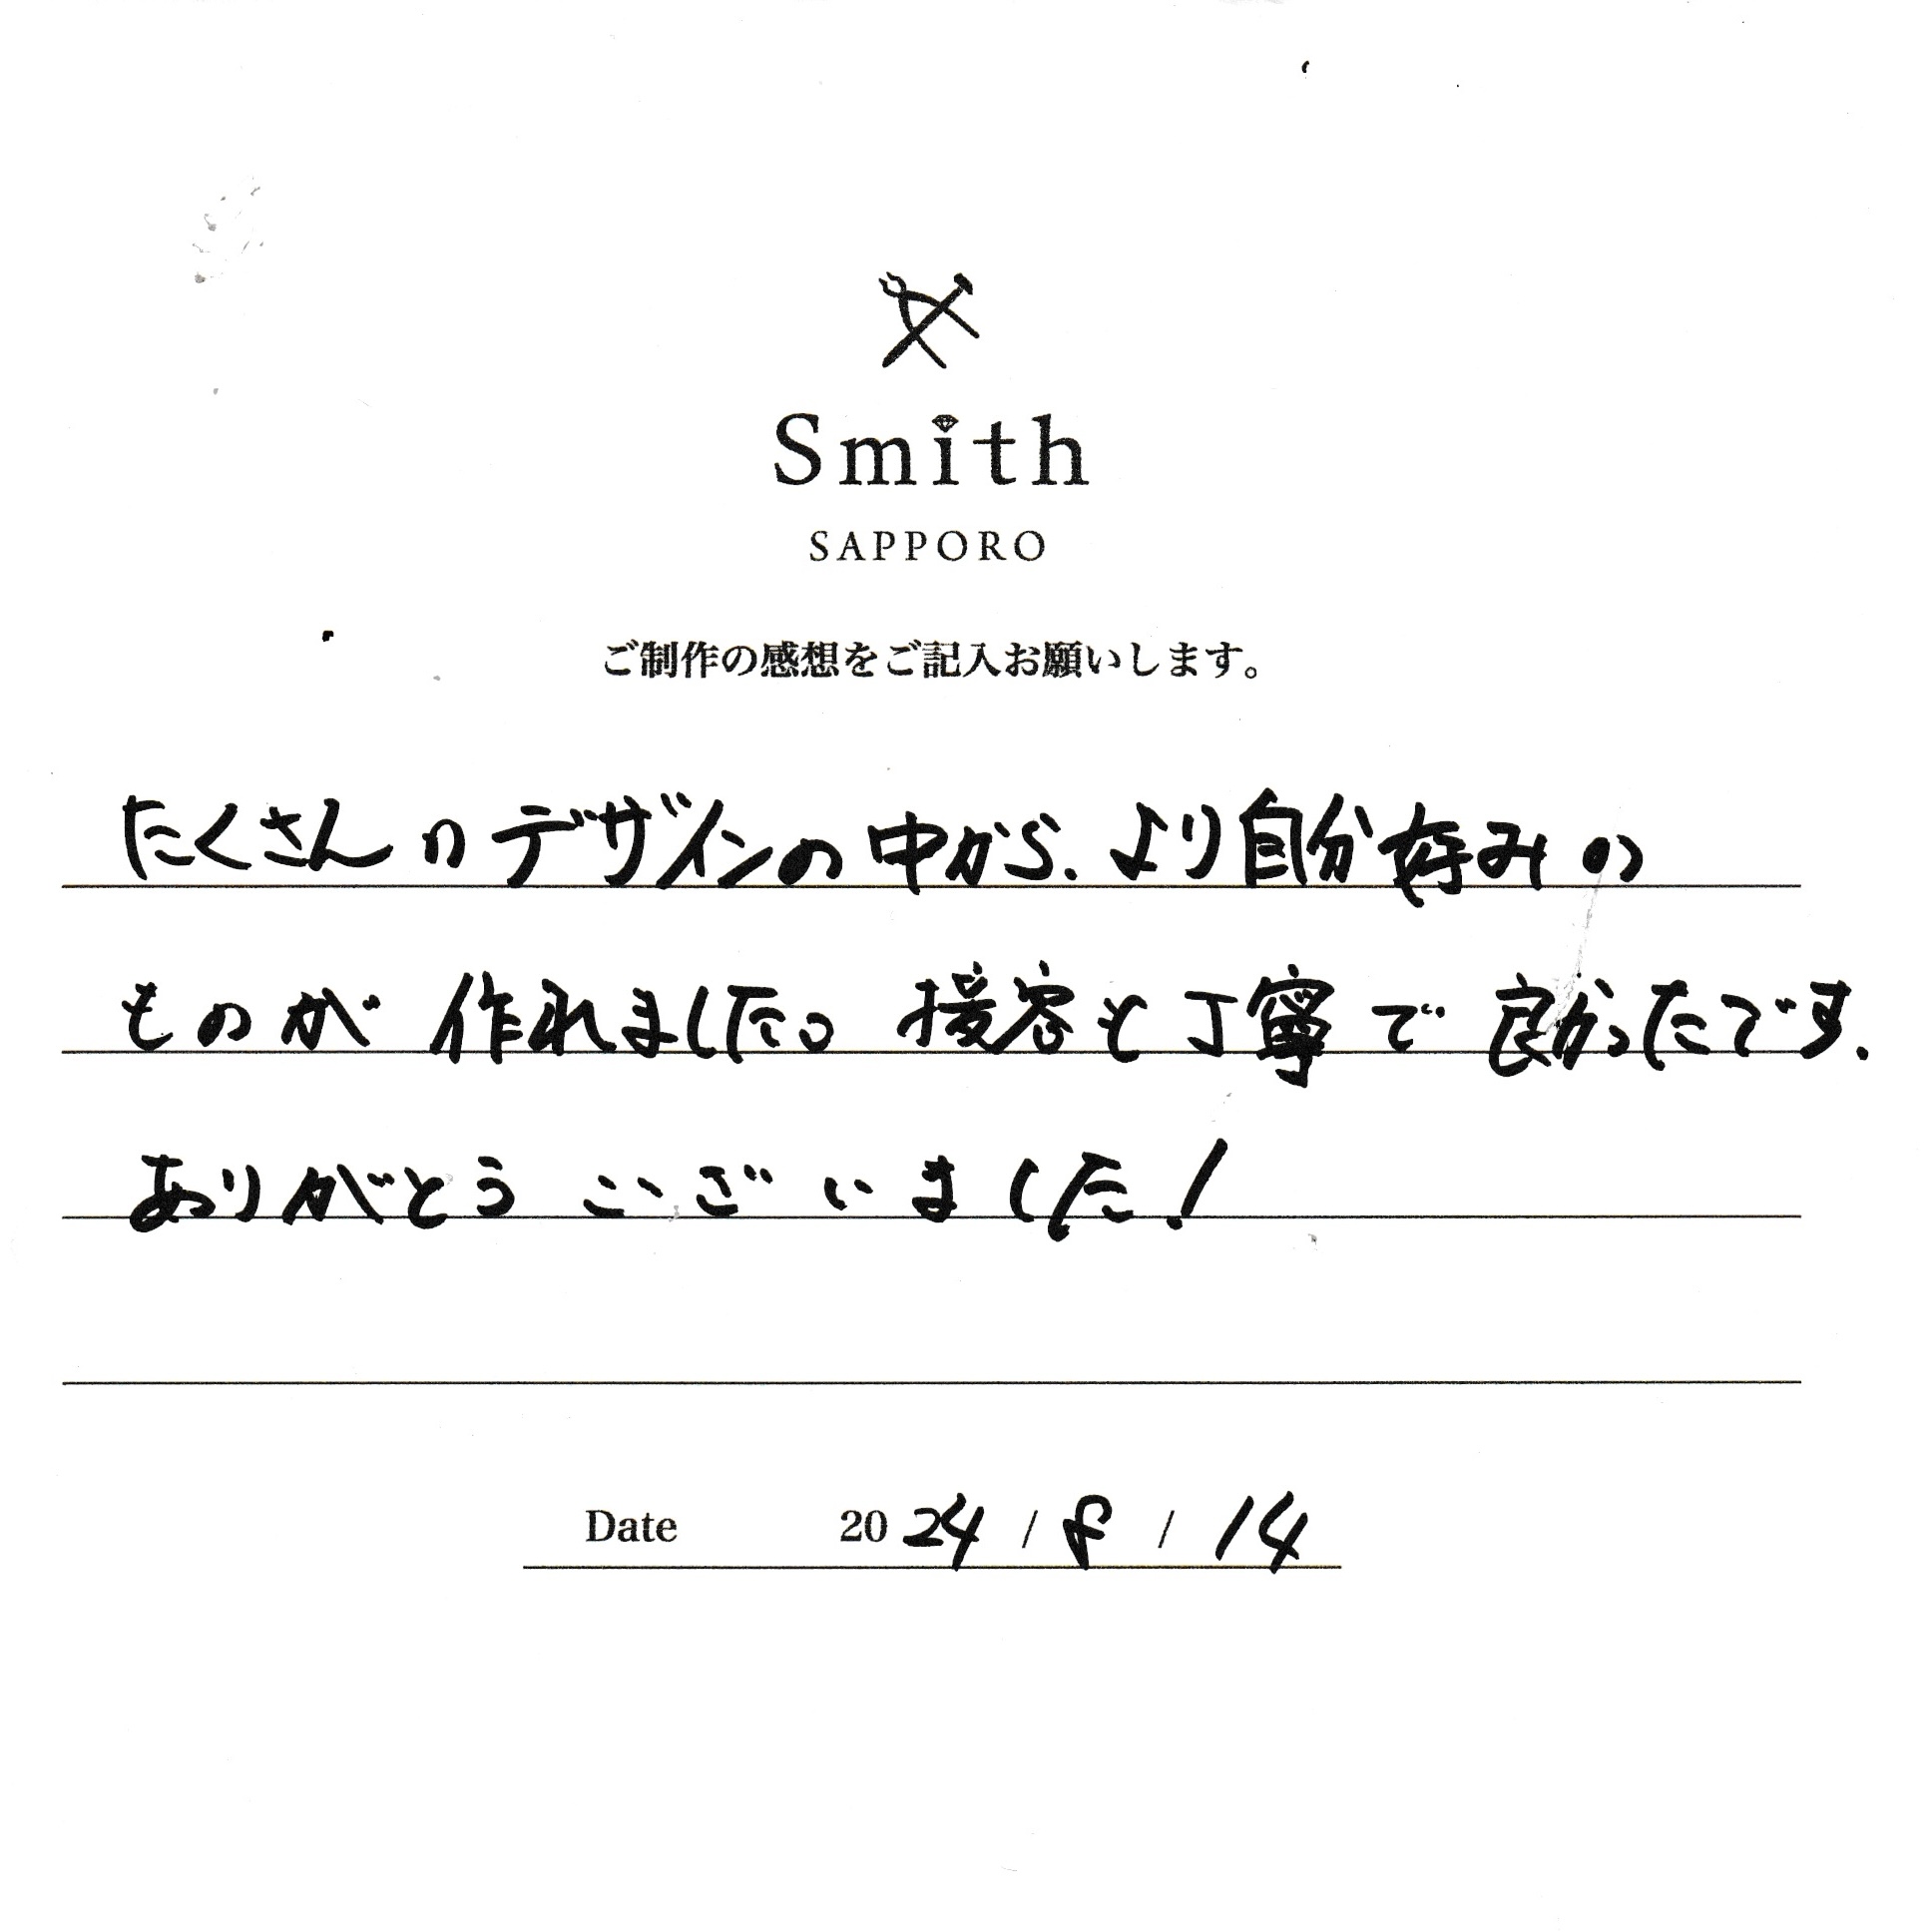 Smith
SAPPORO
ご制作の感想をご記入お願いします。
たくさんのデザインの中から、より自分好みの
ものが作れました。接客も丁寧で良かったです。
ありがとうございました!
Date 2024 / 8 / 14